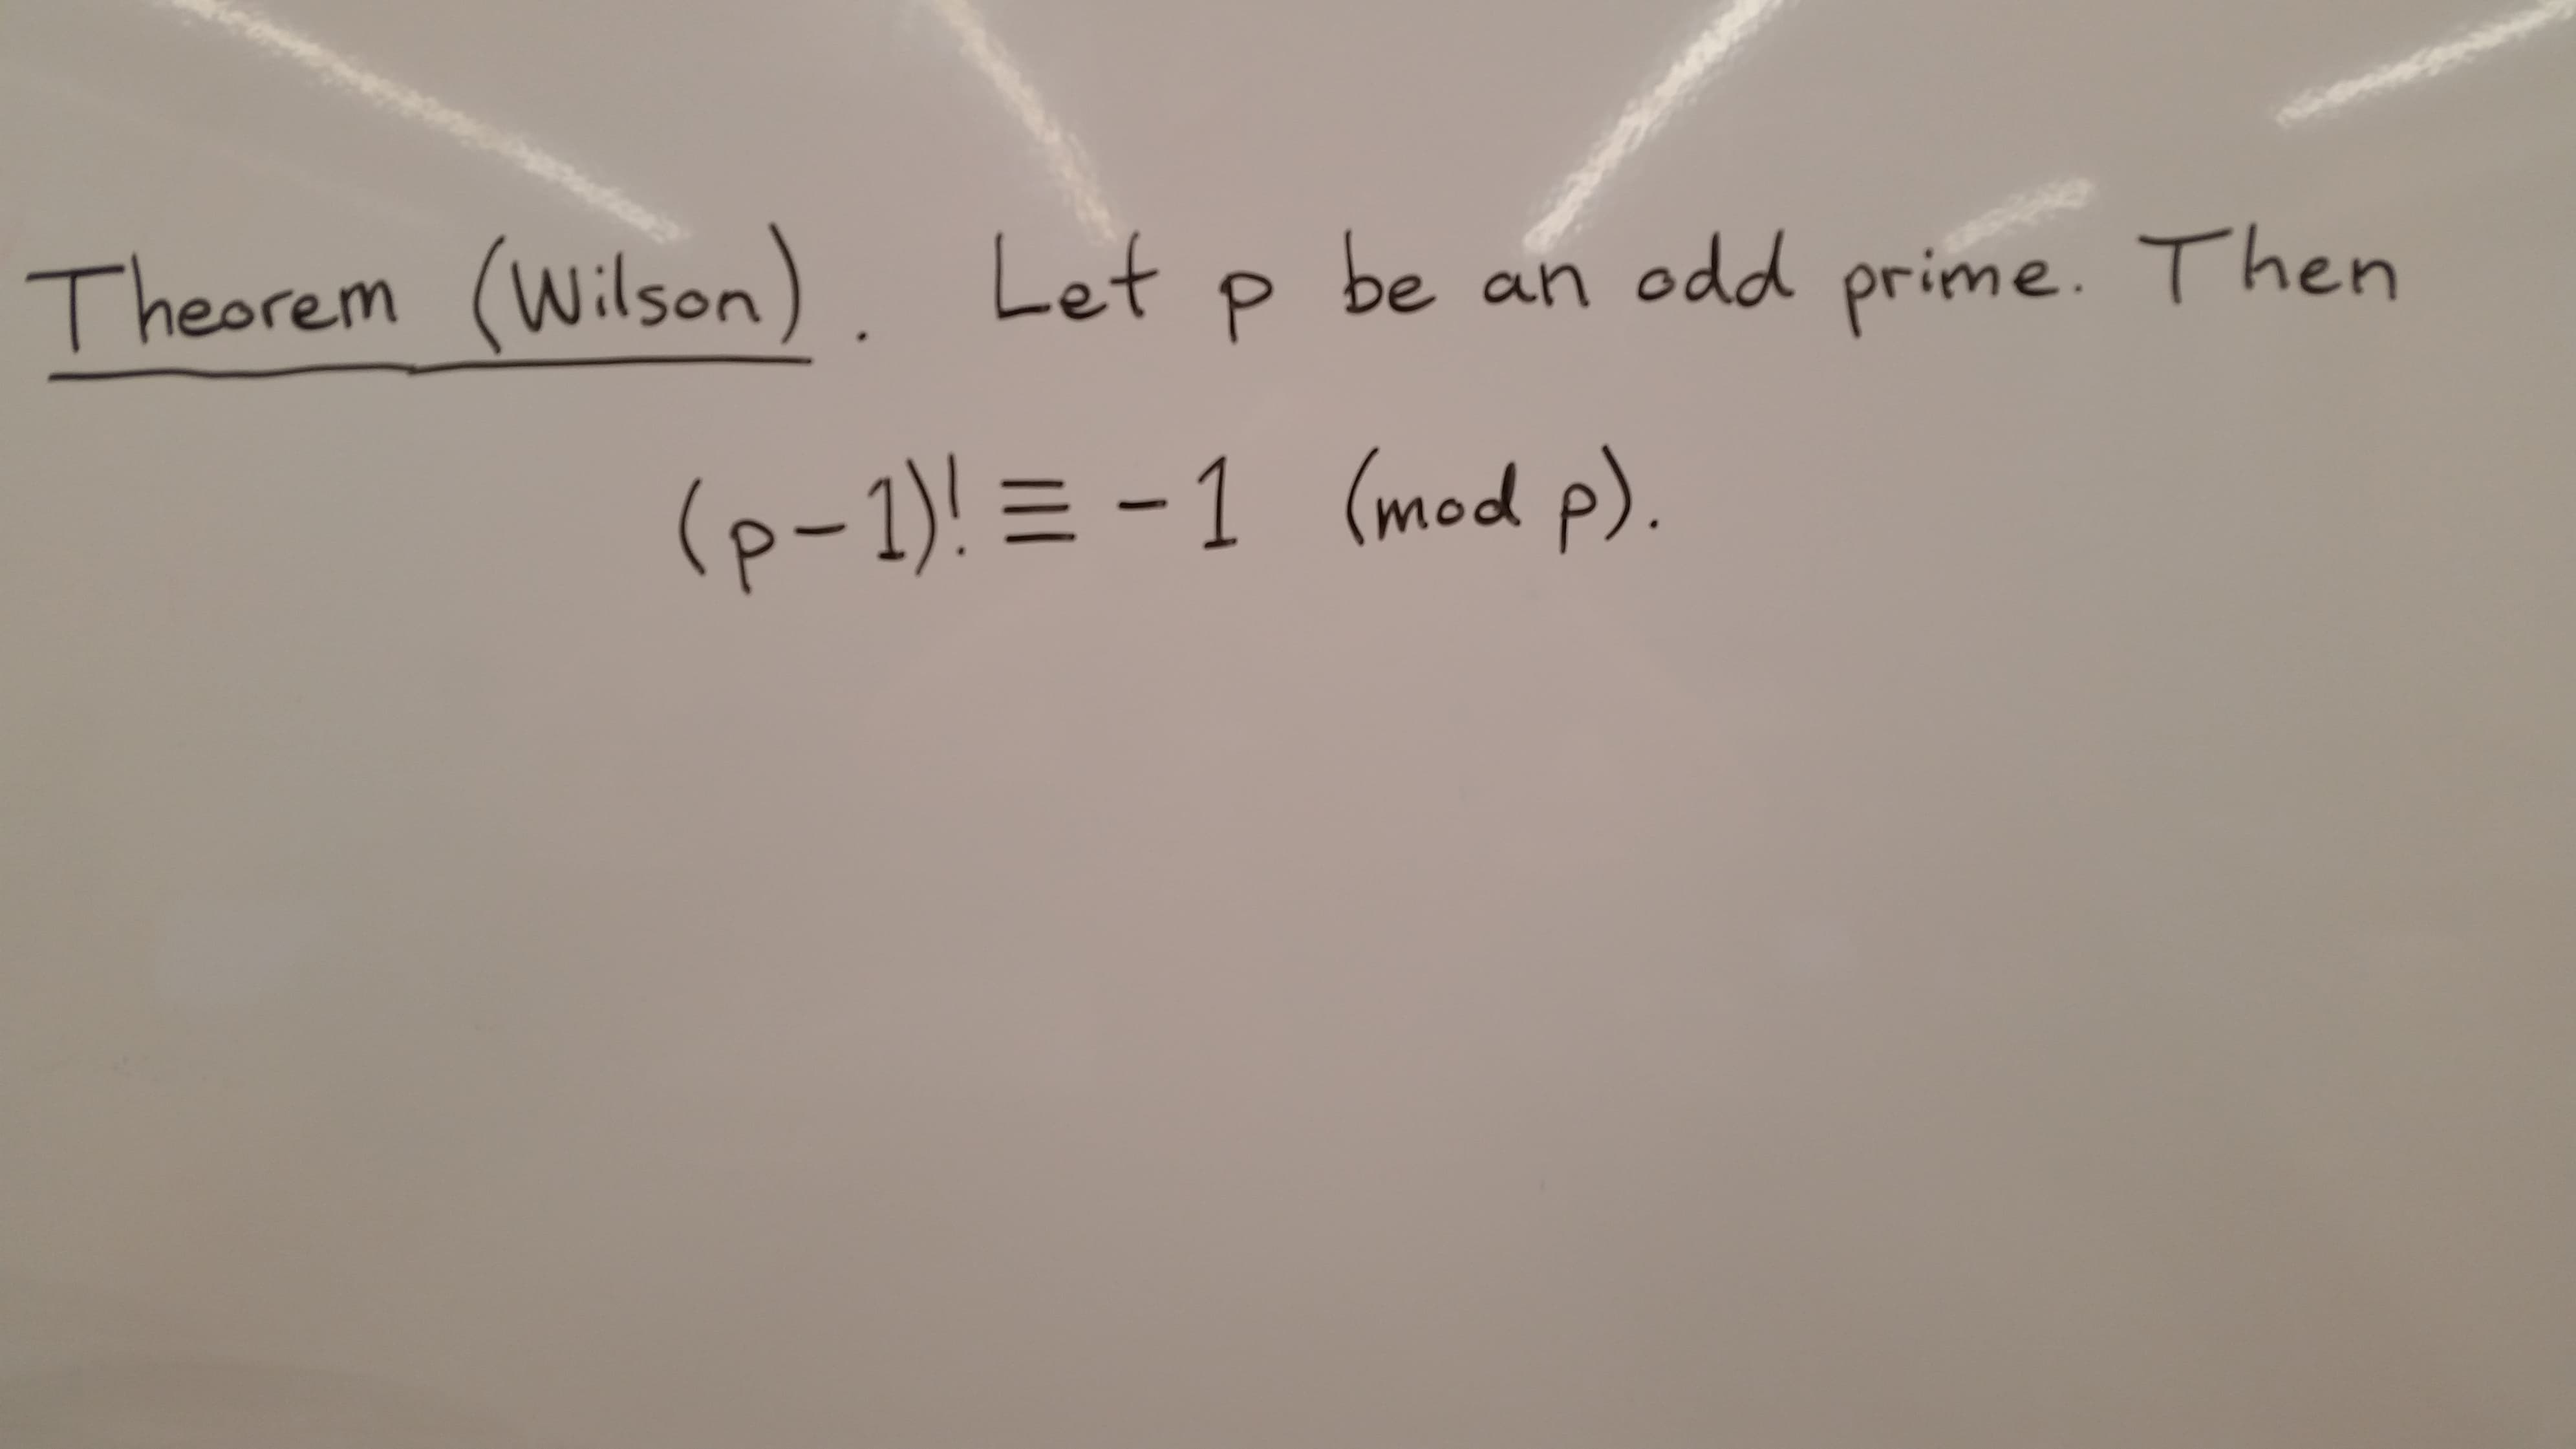 Theorem (Wilson). Let p be an odd prime. Then
(p-1)! ≡ -1 (mod p).